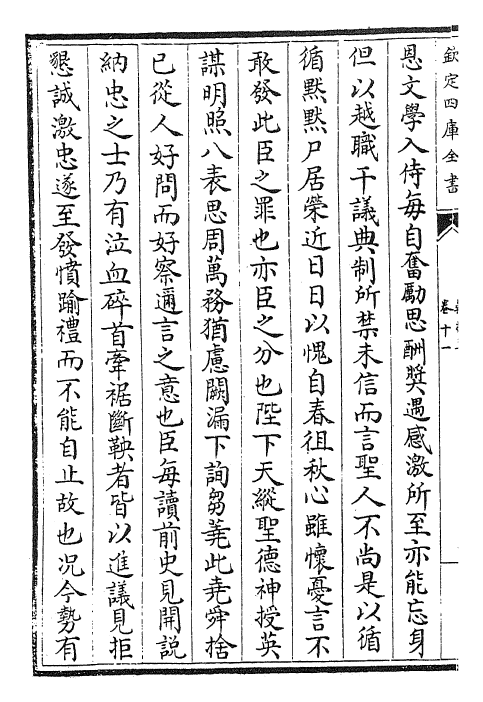 欽定四庫全書
卷十一
恩文學入侍每自奮勵思酬奬遇感激所至亦能忘身
但以越職干議典制所禁未信而言聖人不尚是以循
循黙黙尸居榮近日日以愧自春徂秋心雖懷憂言不
敢發此臣之罪也亦臣之分也陛下天縱聖德神授英
謀明照八表思周萬務猶慮闕漏下詢芻蕘此堯舜捨
已從人好問而好察邇言之意也臣每讀前史見開説
納忠之士乃有泣血碎首牽裾斷鞅者皆以進議見拒
懇誠激忠遂至發憤踰禮而不能自止故也况今勢有